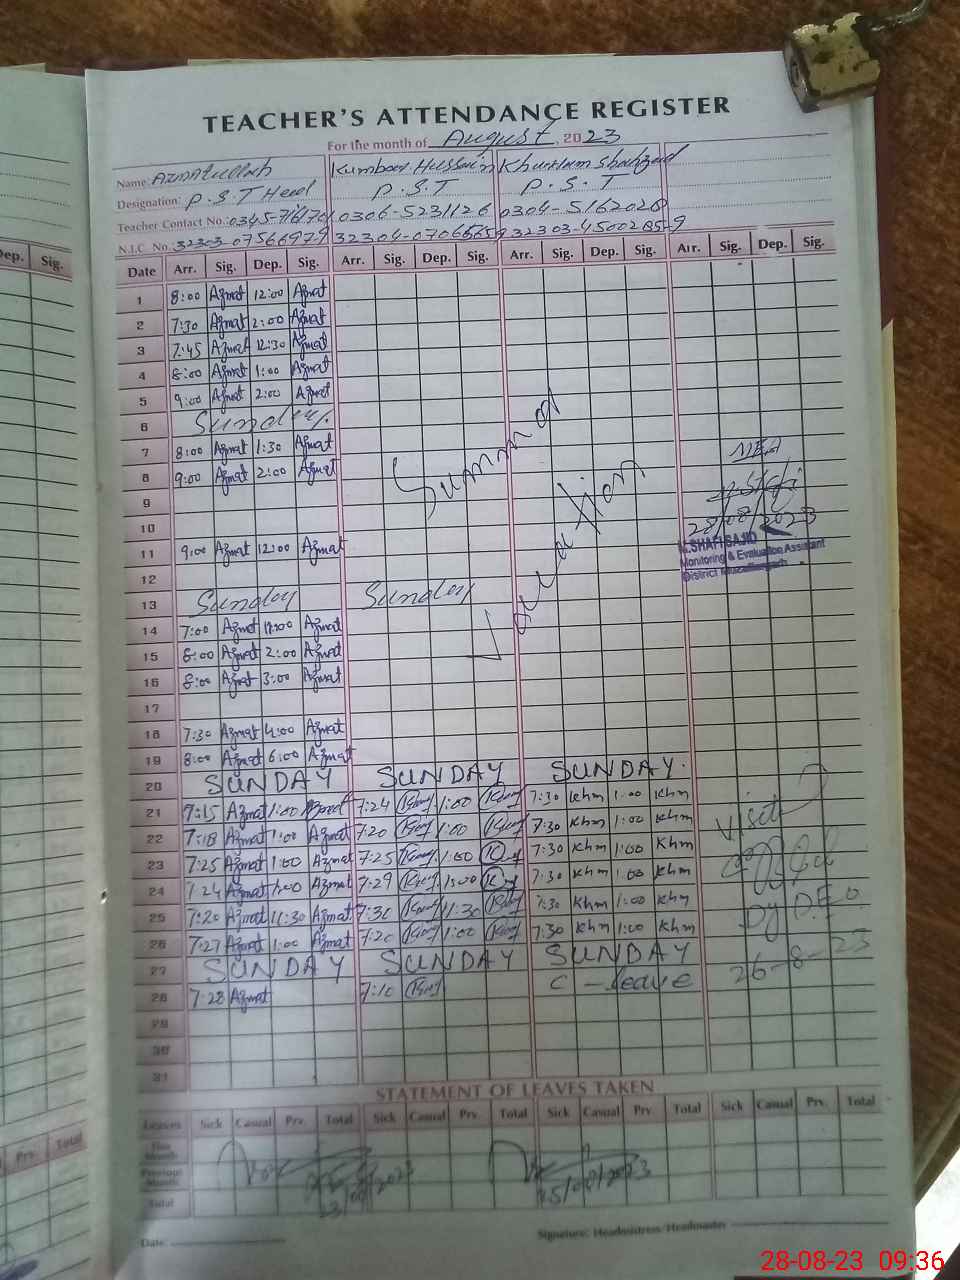 TEACHER'S ATTENDANCE REGISTER
For the month of August, 2023
Name: Azmatullah Kumbar Hussain Khurram Shahzad
Designation: P.S.T Head P.S.T P.S.T
Teacher Contact No.: 0306-5231126
N.I.C No. 32303-07566979
Dep. Sig. Date Arr. Sig. Dep. Sig. Arr. Sig. Dep. Sig. Arr. Sig. Dep. Sig. Arr. Sig. Dep. Sig.
1 8:00 Azmat 12:00 Azmat
2 7:30 Azmat 2:00 Azmat
3 7:45 Azmat 12:30 Azmat
4 8:00 Azmat 1:00 Azmat
5 9:00 Azmat 2:00 Azmat
6 Sunday
7 8:00 Azmat 1:30 Azmat
8 9:00 Azmat 2:00 Azmat
Summer
Vacation
MEA
9
10
28/08/2023
11 9:00 Azmat 12:00 Azmat
M.SHAFI SAJID
Monitoring & Evaluation Assistant
District
12
13 Sunday Sunday
14 7:00 Azmat Azmat
15 8:00 Azmat 2:00 Azmat
16 8:00 Azmat 3:00 Azmat
17
18 7:30 Azmat 4:00 Azmat
19 8:00 Azmat 6:00 Azmat
20 SUNDAY SUNDAY SUNDAY.
21 7:15 Azmat 1:00 Azmat 7:24 1:00 7:30 Khm 1:00 Khm
22 7:18 Azmat 1:00 Azmat 7:20 1:00 7:30 Khm 1:00 Khm
Visit
23 7:25 Azmat 1:00 Azmat 7:25 1:00 7:30 Khm 1:00 Khm
24 7:24 Azmat 1:00 Azmat 7:29 1:00 7:30 Khm 1:00 Khm
25 7:20 Azmat 11:30 Azmat 7:30 11:30 7:30 Khm 1:00 Khm
Dy D.E.O.
26 7:27 Azmat 1:00 Azmat 7:20 1:00 7:30 Khm 1:00 Khm
27 SUNDAY SUNDAY SUNDAY
26-8-23
28 7:28 Azmat 7:10 C - leave
29
30
31
STATEMENT OF LEAVES TAKEN
Prv. Total Leaves Sick Casual Prv. Total Sick Casual Prv. Total Sick Casual Prv. Total Sick Casual Prv. Total
This Month
Previous Month
25/08/2023
Total
Date: Signature: Headmistress/Headmaster
28-08-23 09:36